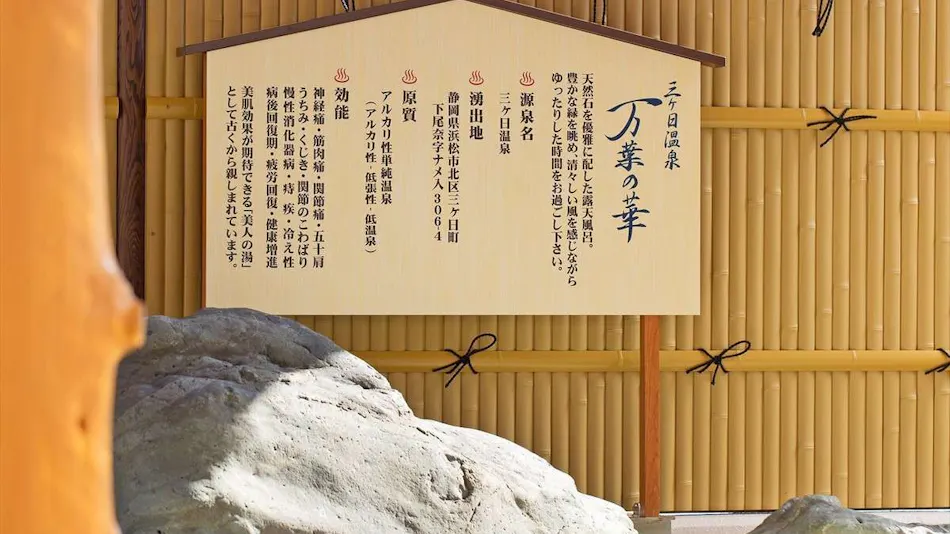 三ヶ日温泉
万葉の華
天然石を優雅に配した露天風呂。
豊かな緑を眺め、清々しい風を感じながら
ゆったりした時間をお過ごし下さい。
源泉名
三ヶ日温泉
湧出地
静岡県浜松市北区三ヶ日町
下尾奈字ナメ入306-4
原質
アルカリ性単純温泉
（アルカリ性-低張性-低温泉）
効能
神経痛・筋肉痛・関節痛・五十肩
うちみ・くじき・関節のこわばり
慢性消化器病・痔疾・冷え性
病後回復期・疲労回復・健康増進
美肌効果が期待できる「美人の湯」
として古くから親しまれています。